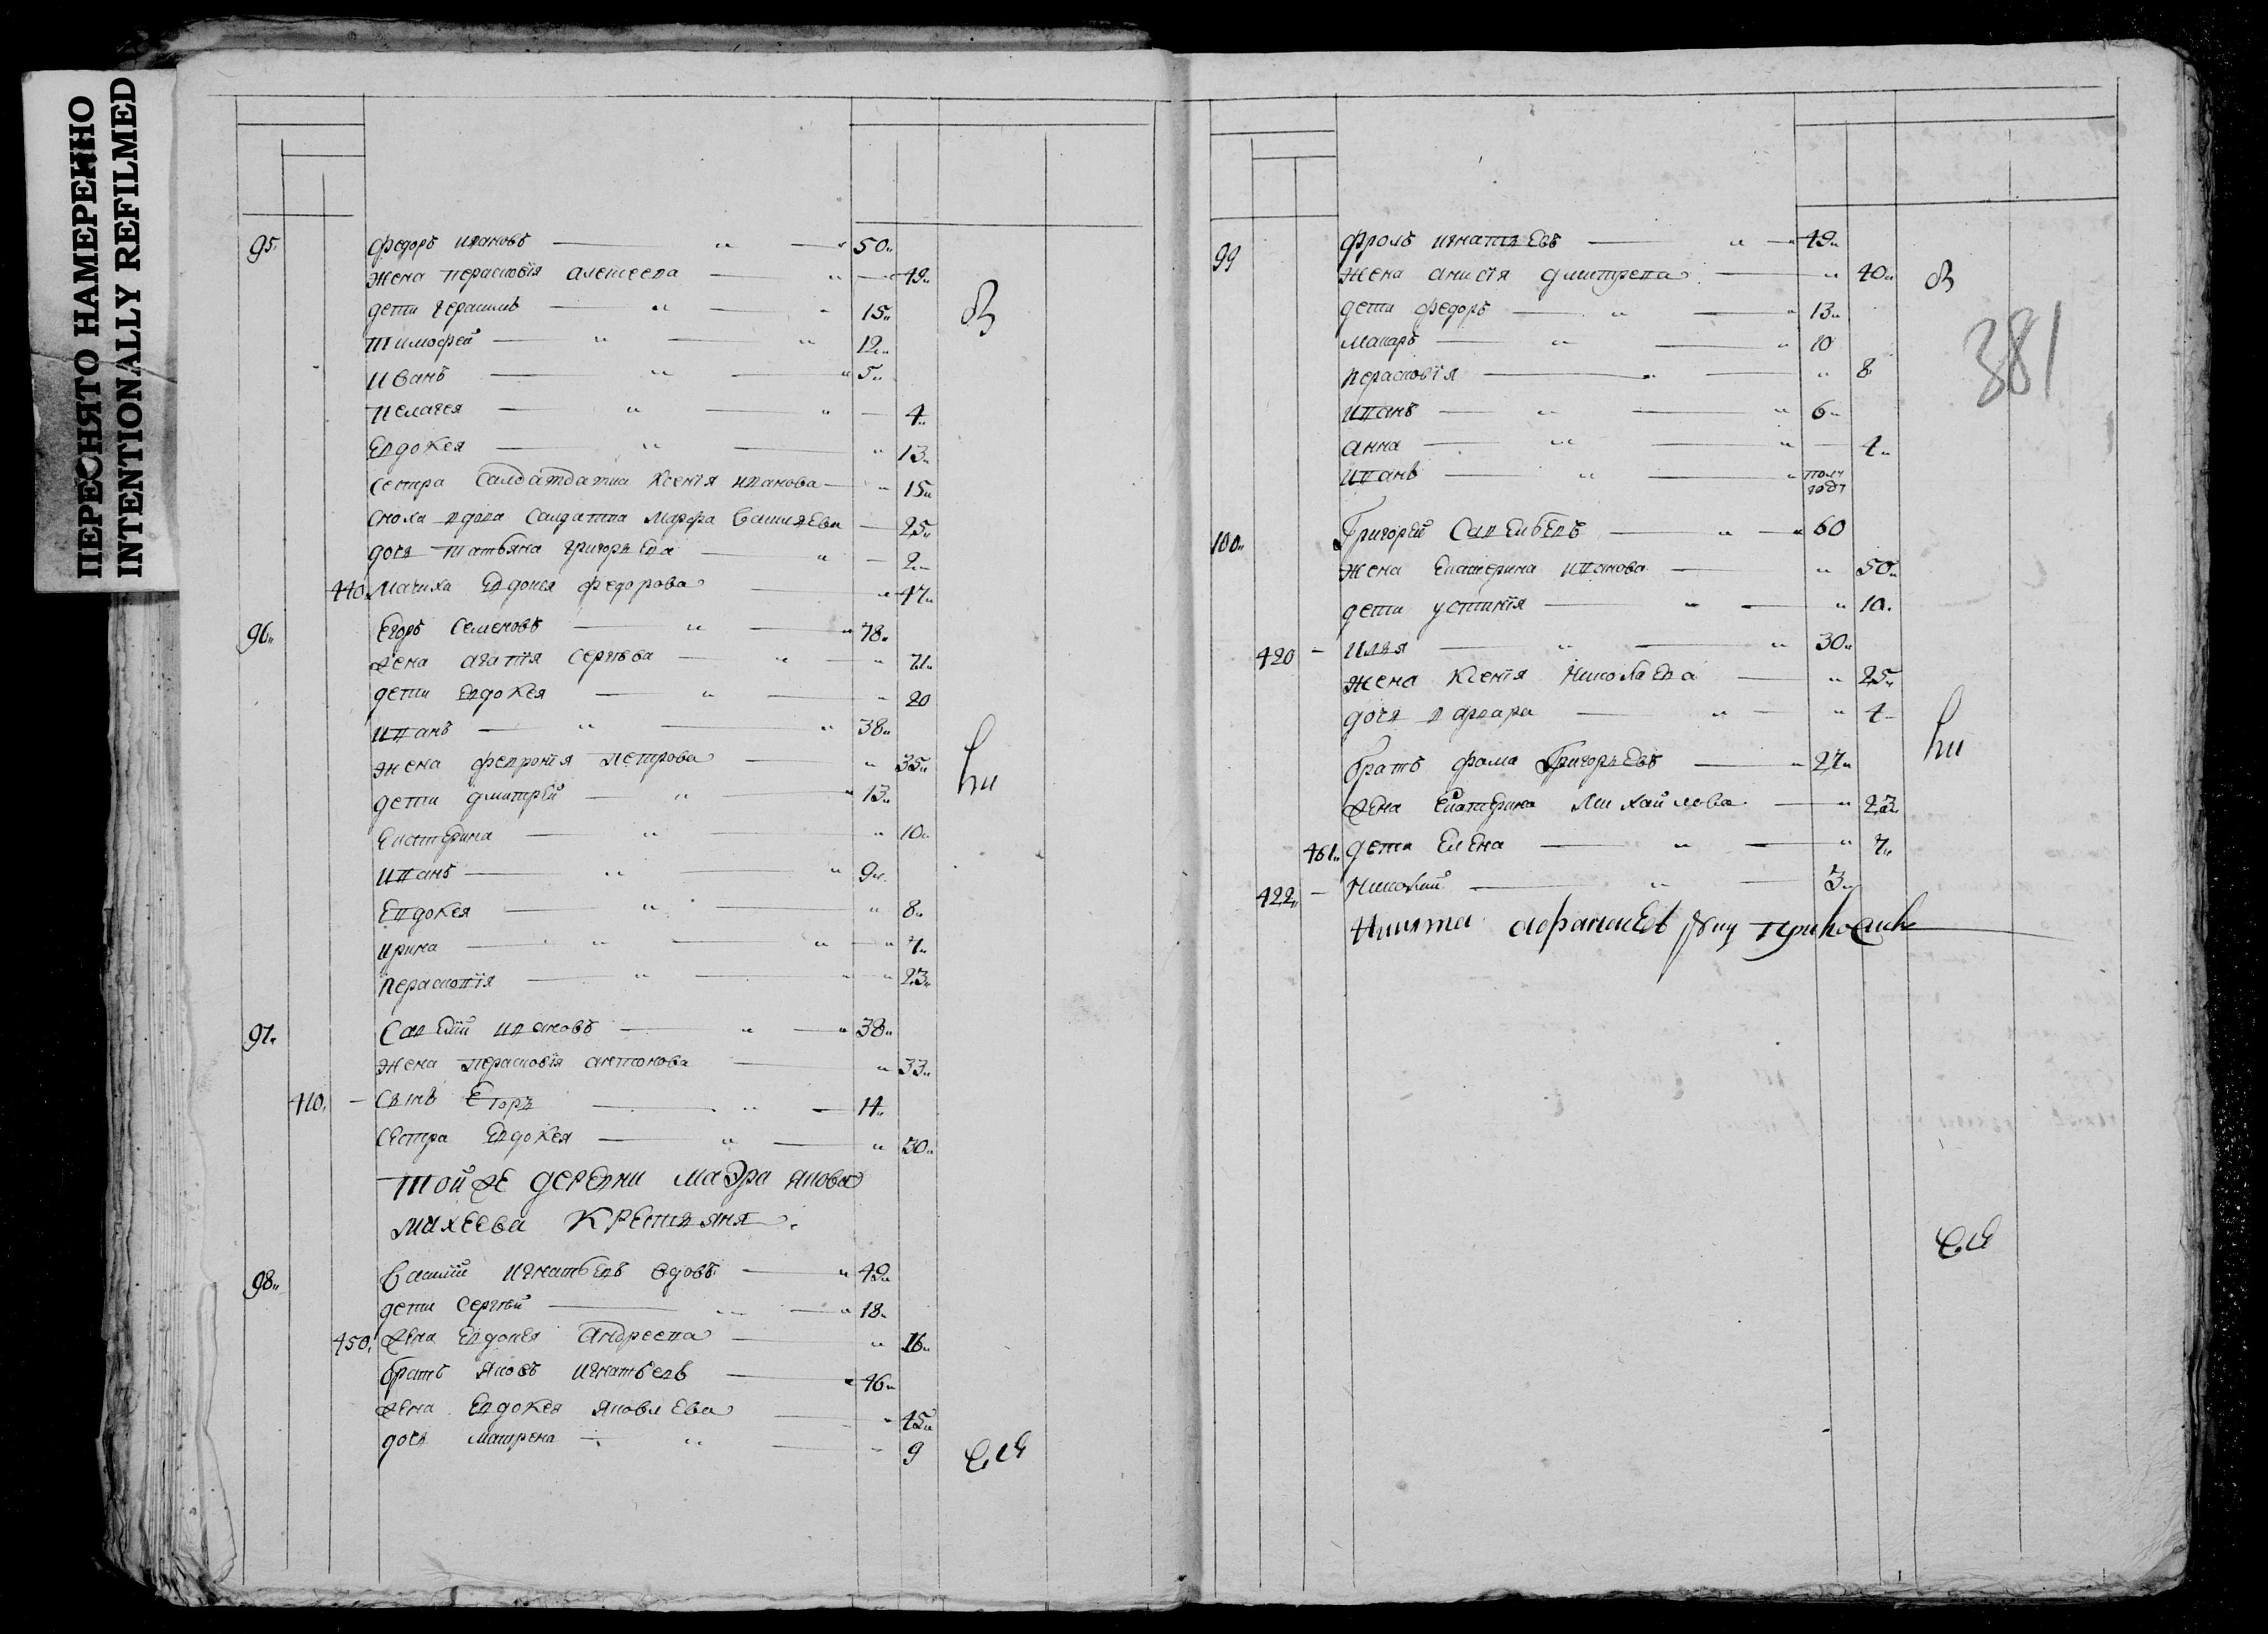 ПЕРЕСНЯТО НАМЕРЕННО
INTENTIONALLY REFILMED
95. федоръ ивановъ 50
жена перасковїя алексеева 49
дети герасимъ 15
тимофей 12
иванъ 5
пелагея 4
Евдокея 13
сестра салдатка ксенїя иванова 15
сноха вдова салдатка марфа васильева 25
дочь татьяна григорьева 2
440. Мачиха Евдокея федорова 47
96. Егоръ семеновъ 78
жена агапїя сергѣева 71
дети Евдокея 20
иванъ 38
жена февронїя петрова 35
дети дмитрей 13
Екатерина 10
иванъ 9
Евдокея 8
ирина 4
перасковїя 23
97. Савелїй ивановъ 38
жена перасковїя антонова 33
410. сынъ Егоръ 14
сестра Евдокея 30
той же деревни маэра якова
михеева крестьяня
98. Василїй игнатьевъ вдовъ 49
дети сергѣй 18
450. жена Евдокея андреева 16
братъ яковъ игнатьевъ 46
жена Евдокея яковлева 45
дочь матрена 9
99 фролъ игнатьевъ 49
жена анисїя дмитрева 40
дети федоръ 13
макаръ 10
перасковїя 8
иванъ 6
анна 4
иванъ полу
года
381
100. Григорей савельевъ 60
жена Екатерина иванова 50
дети устинїя 10
420 илья 30
жена ксенїя николаева 25
дочь варвара 4
братъ фома Григорьевъ 27
жена Екатерина михайлова 23
461. дети Елена 7
422. николай 3